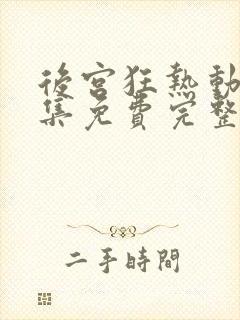 後宮狂熱動
集免費完整
二手時間